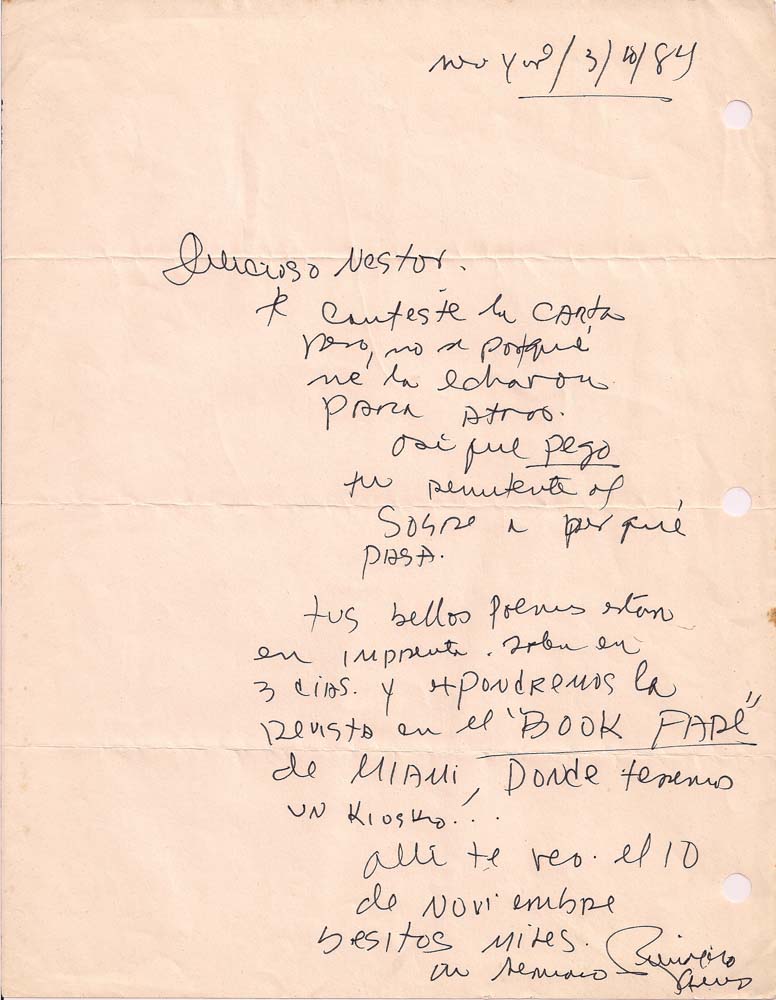 new york / 3/10/84
Delicioso Nestor.
te conteste la carta
pero, no se porqué
me la echaron
para atras.
asi que pego
tu remitente al
sobre a ver qué
pasa.
tus bellos poemas estan
en imprenta. salen en
3 dias. y expondremos la
revista en el "BOOK FARE"
de MIAMI, Donde tenemos
un kiosko...
alli te veo. el 10
de noviembre
besitos miles.
Reinaldo